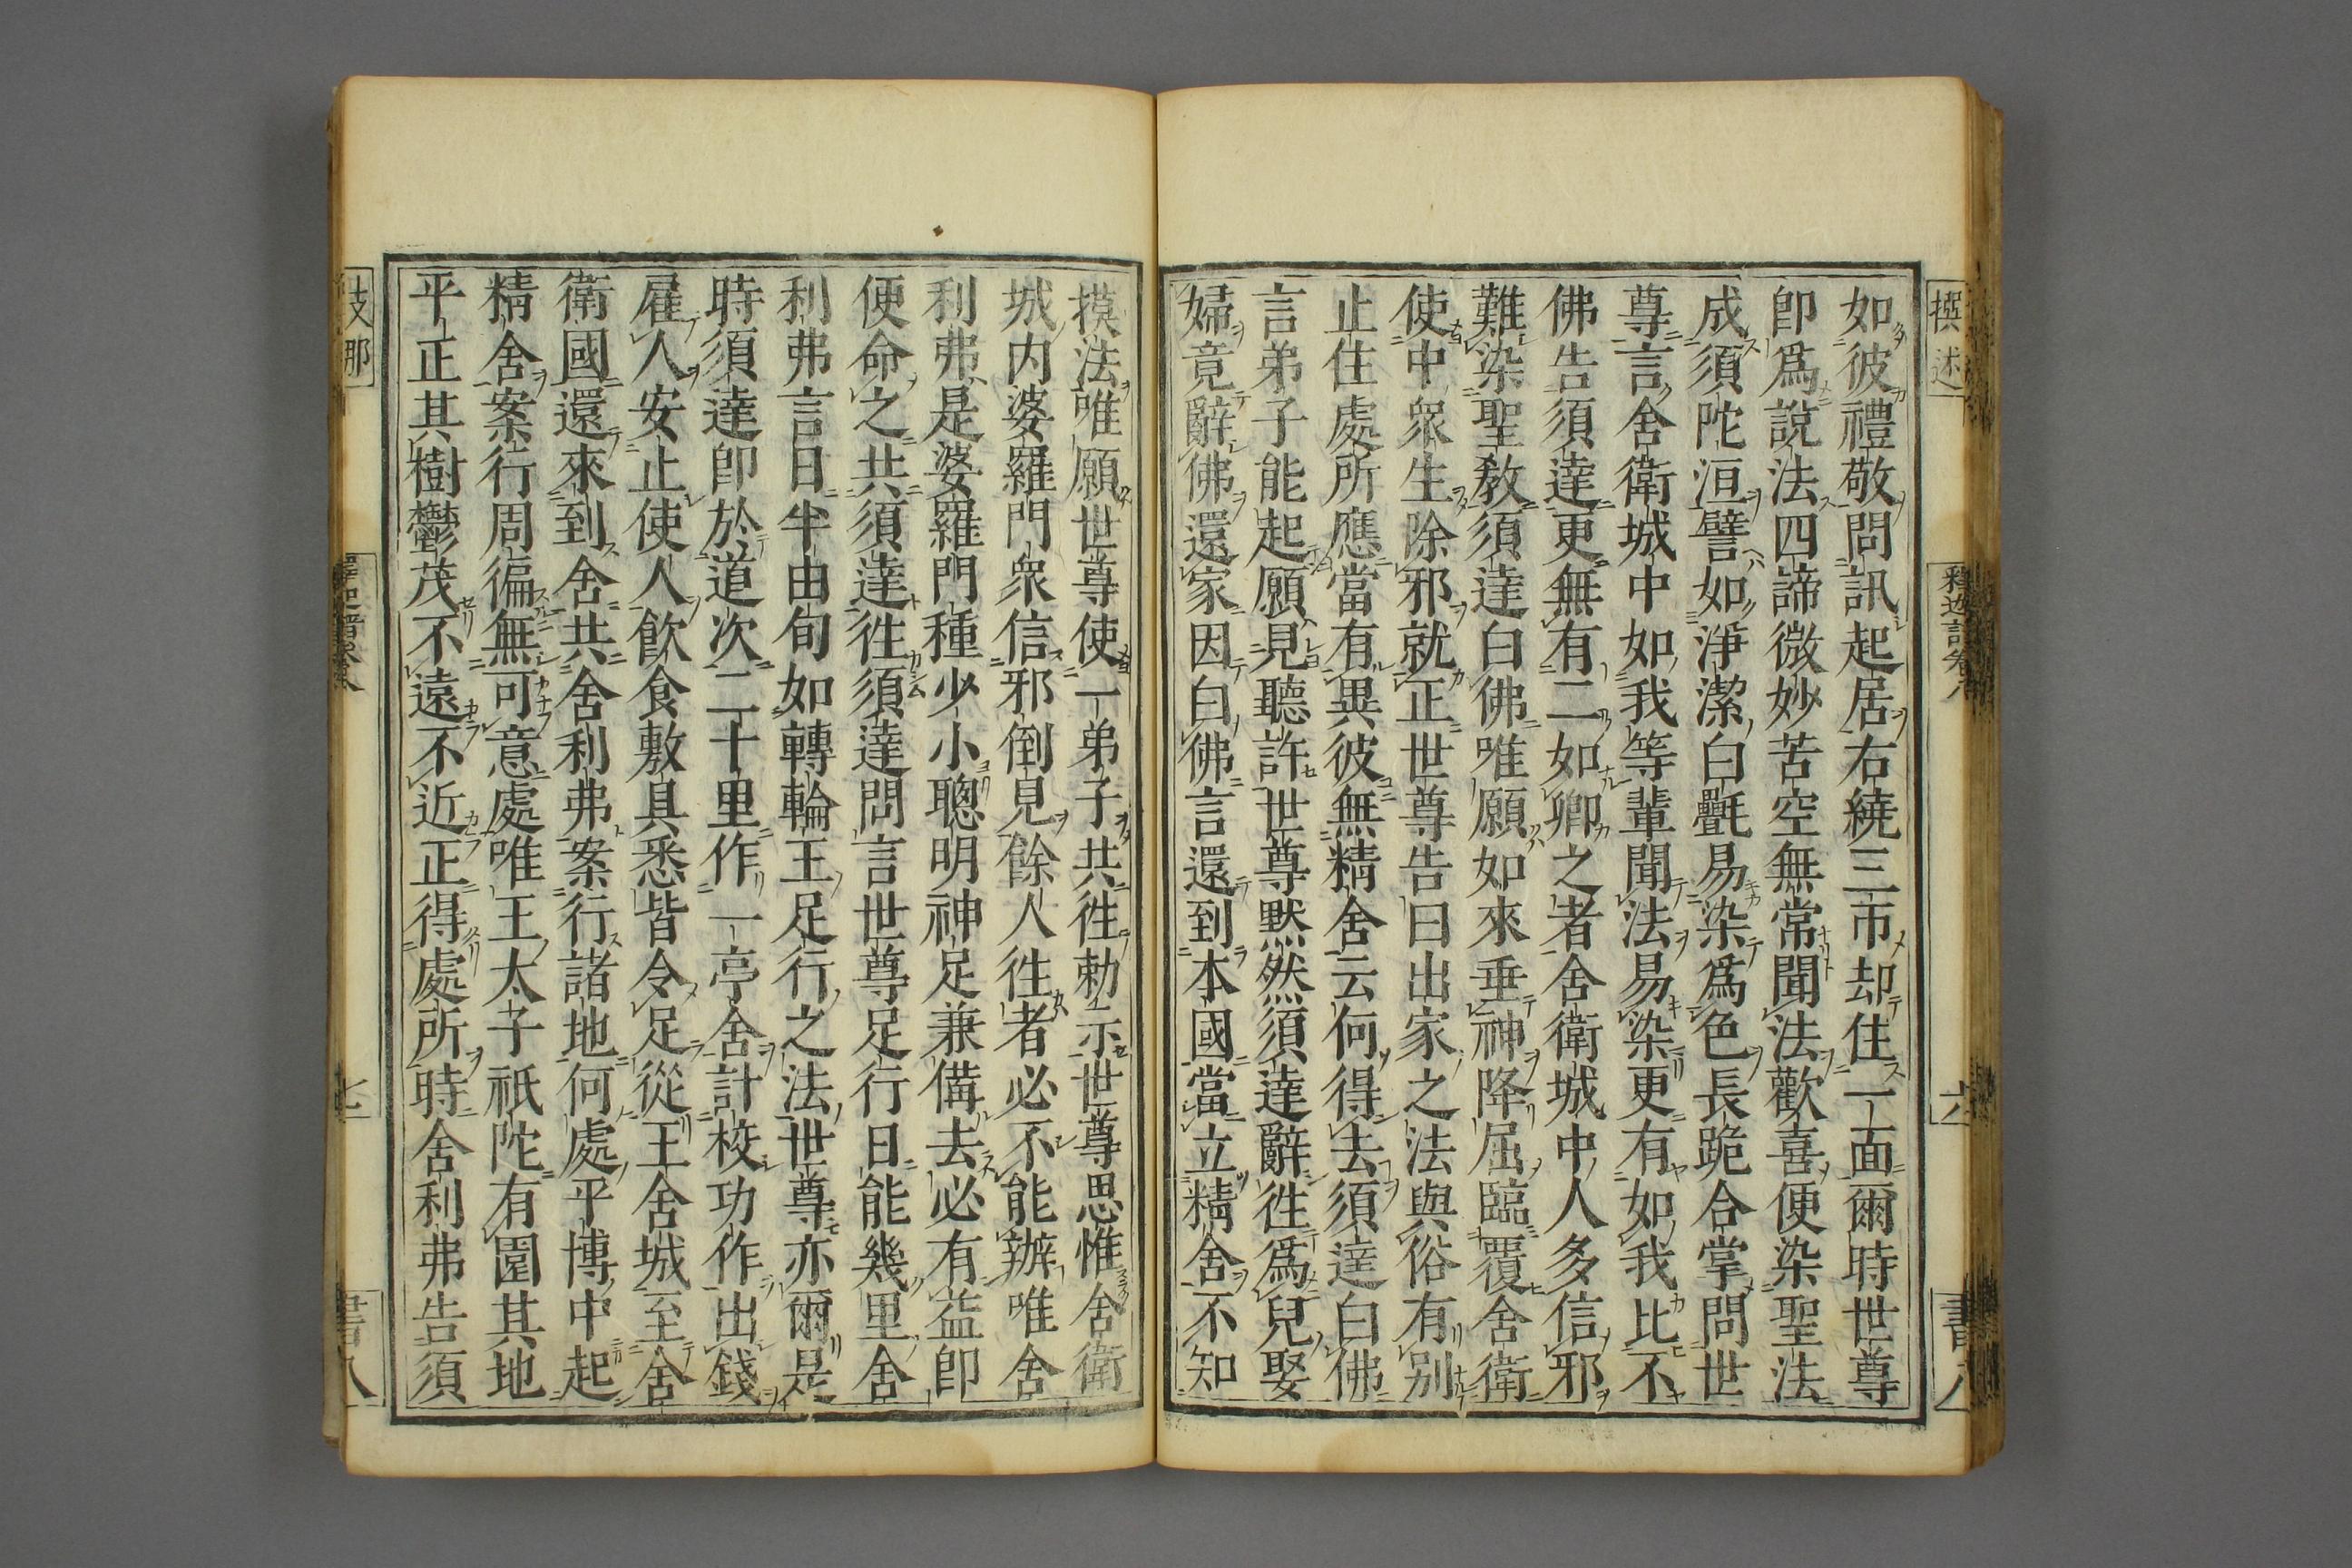 撰述
釋迦譜卷八
六
書八
如彼禮敬問訊起居右繞三帀却住一面爾時世尊
卽爲說法四諦微妙苦空無常聞法歡喜便染聖法
成須陀洹譬如淨潔白㲲易染爲色長跪合掌問世
尊言舍衛城中如我等輩聞法易染更有如我比不
佛告須達更無有二如卿之者舍衛城中人多信邪
難染聖教須達白佛唯願如來垂神降屈臨覆舍衛
使中衆生除邪就正世尊告曰出家之法與俗有別
止住處所應當有異彼無精舍云何得去須達白佛
言弟子能起願見聽許世尊默然須達辭徃爲兒娶
婦竟辭佛還家因白佛言還到本國當立精舍不知
摸法唯願世尊使一弟子共徃勅示世尊思惟舍衛
城内婆羅門衆信邪倒見餘人徃者必不能辦唯舍
利弗是婆羅門種少小聰明神足兼備去必有益卽
便命之共須達徃須達問言世尊足行日能幾里舍
利弗言日半由旬如轉輪王足行之法世尊亦爾是
時須達卽於道次二十里作一亭舍計校功作出錢
雇人安止使人飮食敷具悉皆令足從王舍城至舍
衛國還來到舍共舍利弗案行諸地何處平博中起
精舍案行周徧無可意處唯王太子祇陀有園其地
平正其樹鬱茂不遠不近正得處所時舍利弗告須
支那
七
書八